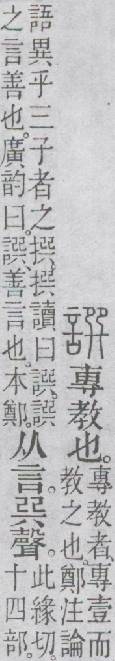 譔專教也。
專教者、專壹而
教之也。鄭注論
語異乎三子者之撰。撰讀曰譔。譔
之言善也。廣韵曰。譔、善言也。本鄭。
从言。巺聲。
此緣切。
十四部。